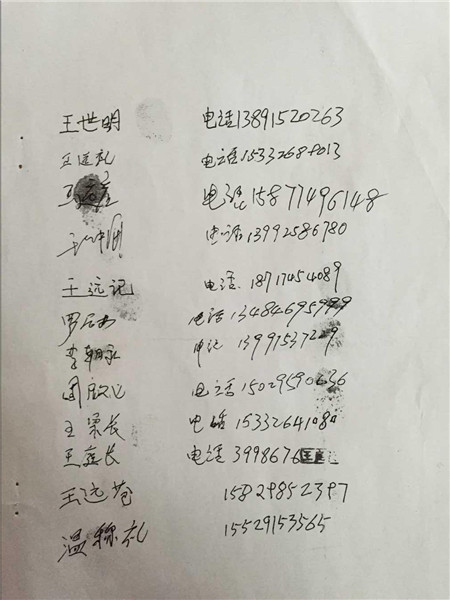 王世明 电话13891520263
王连礼 电话15332688013
电话15877496148
电话13992586780
王远记 电话18717454089
电话13484695999
李朝永 电话
周 电话15029590636
王荣长 电话15332641080
王庭长 电话3998676
王远苍 15829852397
温稳礼 15529153565